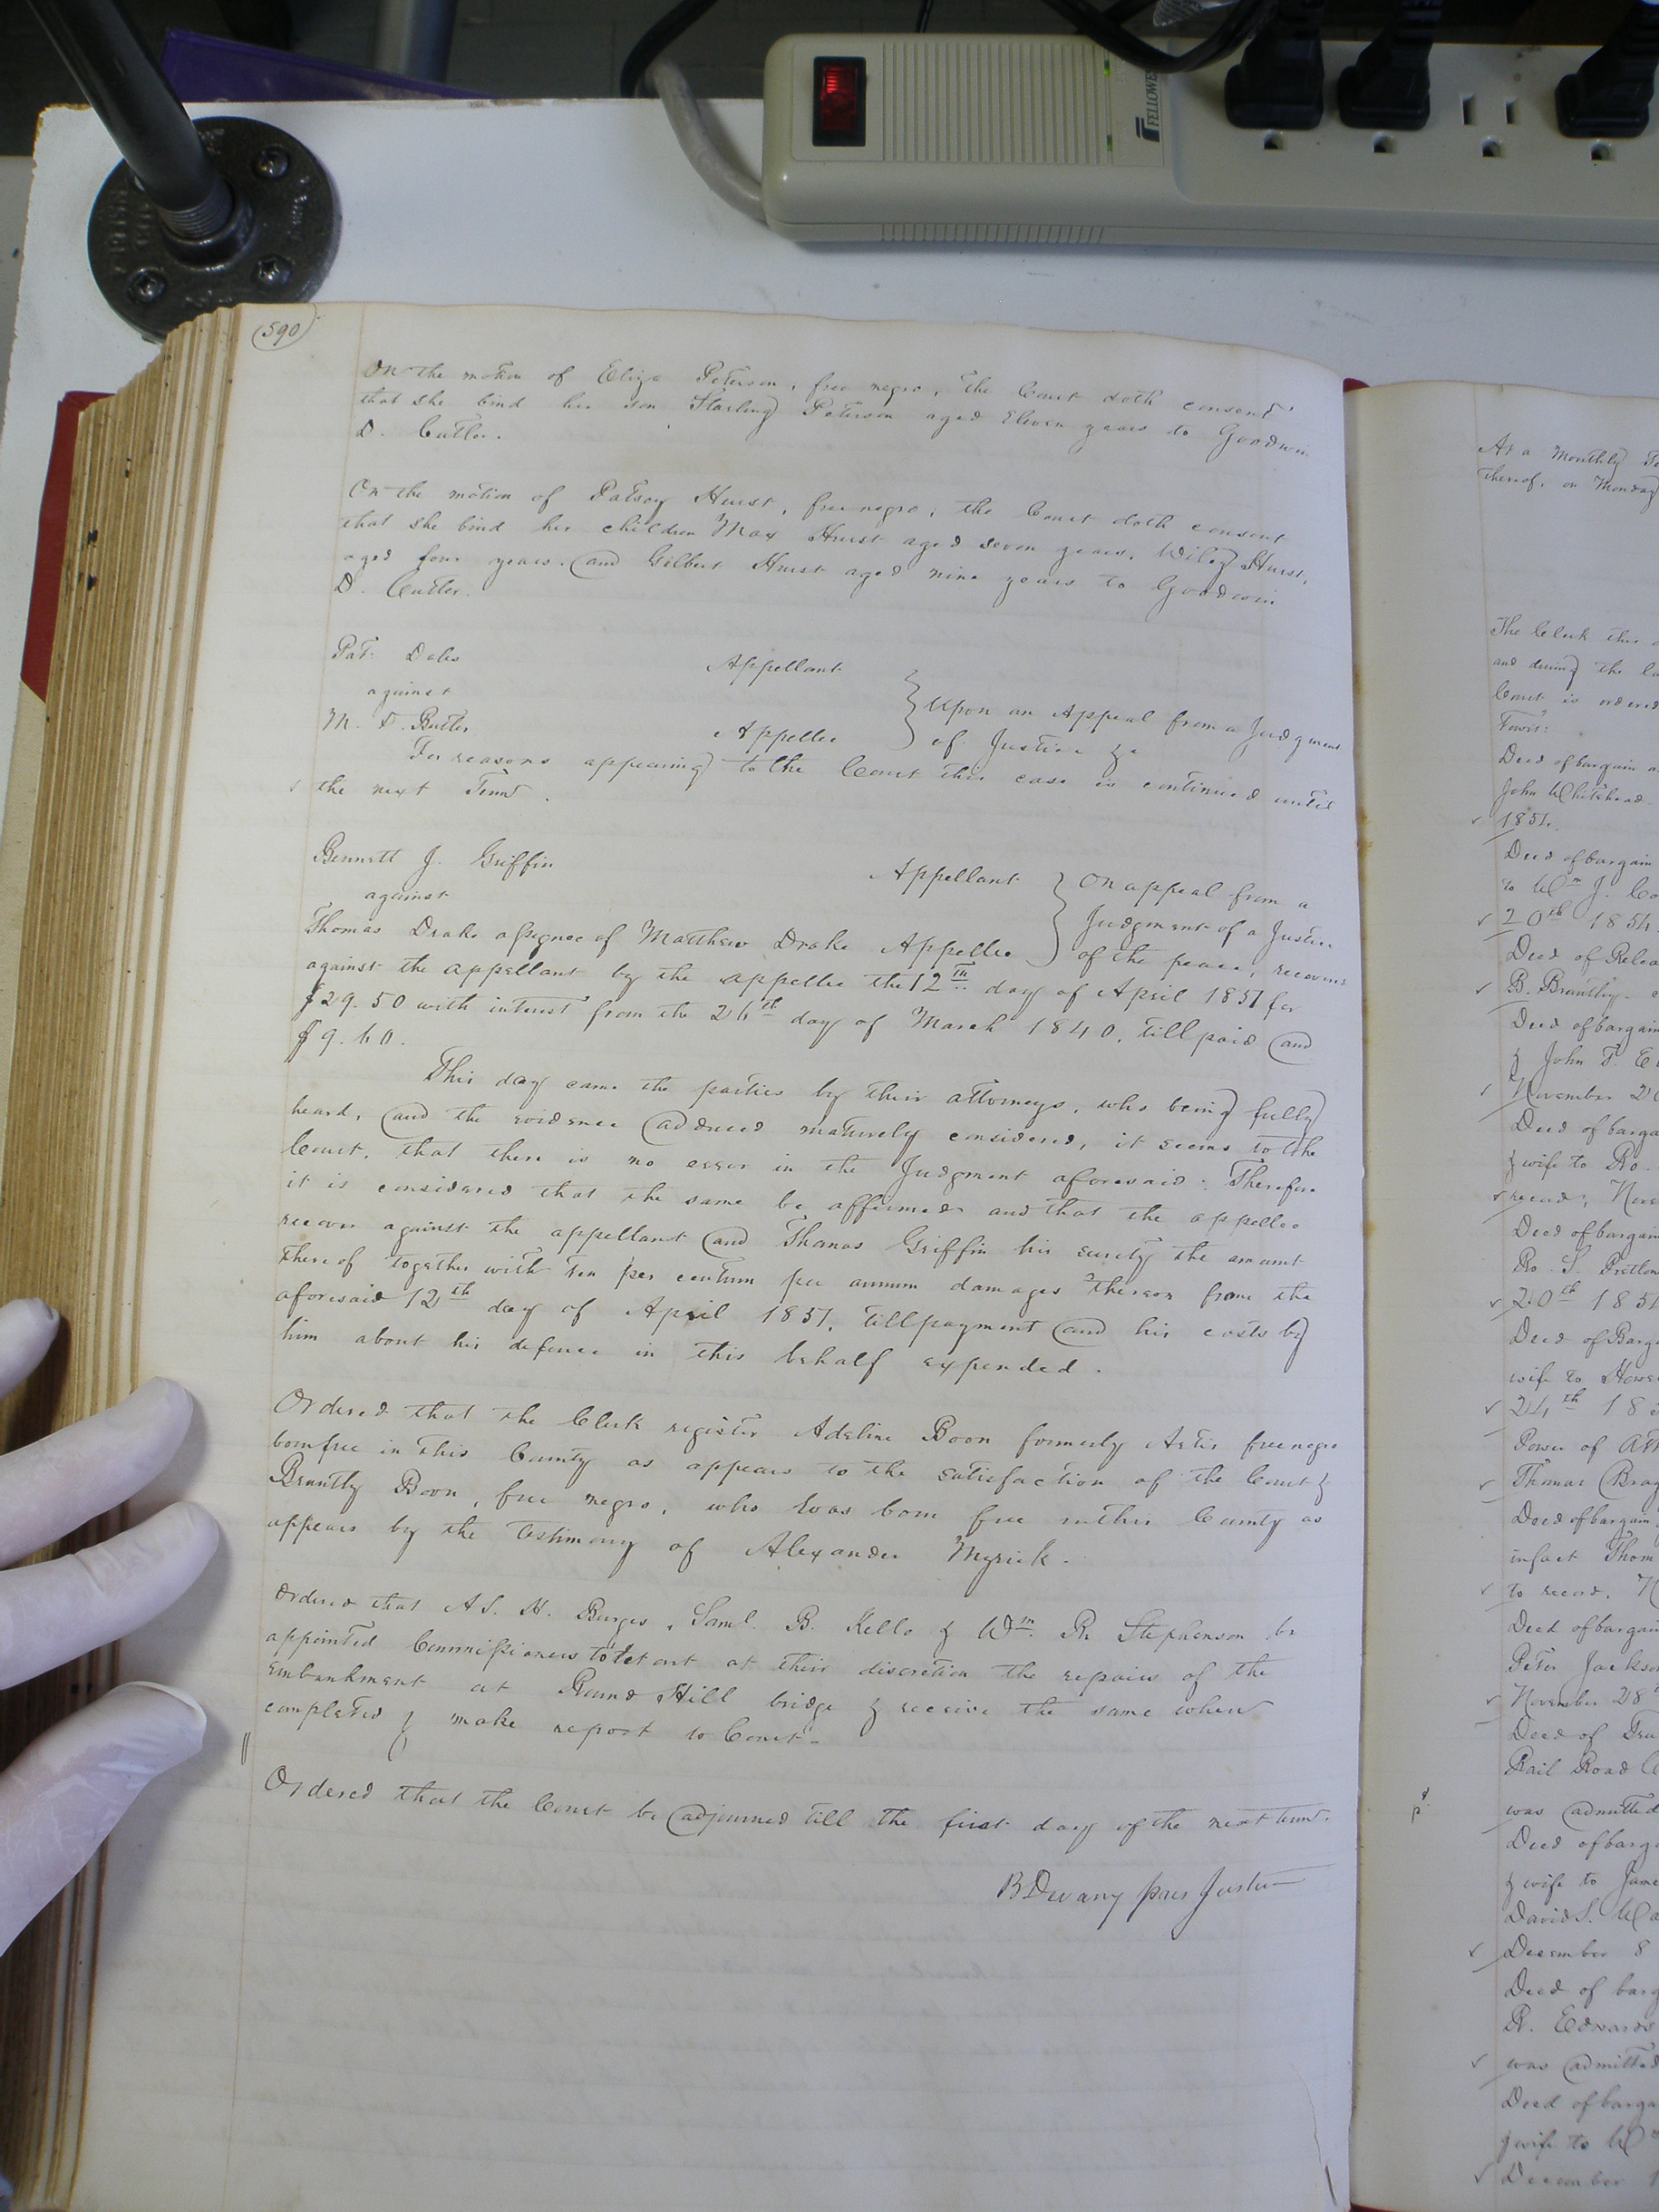 FELLOWES
(590)
On the motion of Eliza Peterson, free negro, the Court doth consent
that she bind her son Starling Peterson aged Eleven years to Goodwin
D. Cutler.
On the motion of Patsey Hurst, free negro, the Court doth consent
that she bind her children Max Hurst aged seven years, Wiley Hurst,
aged four years, and Gilbert Hurst aged nine years to Goodwin
D. Cutler.
Pat. Dels Appellant
against
M. D. Butler Appellee
} Upon an Appeal from a Judgment
of Justice &c
For reasons appearing to the Court this case is continued until
the next Term.
Bennett J. Griffin Appellant } On appeal from a
against Judgment of a Justice
Thomas Drake assignee of Matthew Drake Appellee of the peace, recovered
against the appellant by the appellee the 12th day of April 1851 for
$29.50 with interest from the 26th day of March 1840, till paid and
$9.60.
This day came the parties by their attorneys, who being fully
heard, and the evidence adduced maturely considered, it seems to the
Court, that there is no error in the Judgment aforesaid: Therefore
it is considered that the same be affirmed and that the appellee
recover against the appellant and Thomas Griffin his surety the amount
thereof together with ten per centum per annum damages thereon from the
aforesaid 12th day of April 1851, till payment and his costs by
him about his defence in this behalf expended.
Ordered that the Clerk register Adeline Boon formerly Artis free negro
born free in this County as appears to the satisfaction of the Court &
Brantly Boon, free negro, who was born free in this County as
appears by the testimony of Alexander Myrick.
Ordered that A S. H. Burges, Saml. B. Kello & Wm. R. Stephenson be
appointed Commissioners to let out at their discretion the repairs of the
embankment at Round Hill bridge & receive the same when
completed & make report to Court.
Ordered that the Court be adjourned till the first day of the next term.
B Devany pres Justice
At a Monthly
thereof, on Monday
The Clerk this
and during the
Court is ordered
Towit:
Deed of bargain
John Whitehead
1851.
Deed of bargain
to Wm J.
20th 1851
Deed of Release
B. Brantley
Deed of bargain
& John T.
November
Deed of bargain
& wife to Ro.
record,
Deed of bargain
Ro. S. Pretlow
20th 1851
Deed of Bargain
wife to
24th 18
Power of
Thomas
Deed of bargain
infact Thom
to record.
Deed of bargain
Peter Jackson
November 28th
Deed of
Rail Road
was admitted
Deed of bargain
& wife to
David S.
December 8
Deed of barg
R. Edwards
was admitted
Deed of barga
& wife to
December